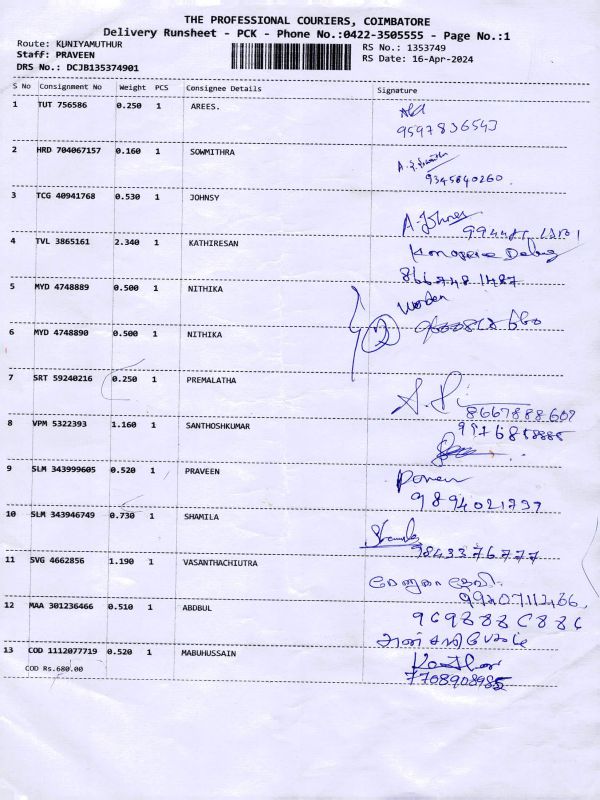 THE PROFESSIONAL COURIERS, COIMBATORE
Delivery Runsheet - PCK - Phone No.:0422-3505555 - Page No.:1
Route: KUNIYAMUTHUR
RS No.: 1353749
Staff: PRAVEEN
RS Date: 16-Apr-2024
DRS No.: DCJB135374901
S No Consignment No Weight PCS Consignee Details Signature
1 TUT 756586 0.250 1 AREES.
9597836543
2 HRD 704067157 0.160 1 SOWMITHRA
9345840260
3 TCG 40941768 0.530 1 JOHNSY
A. Johnsy
4 TVL 3865161 2.340 1 KATHIRESAN
866748 1487
5 MYD 4748889 0.500 1 NITHIKA
6 MYD 4748890 0.500 1 NITHIKA
7 SRT 59240216 0.250 1 PREMALATHA
8667888607
8 VPM 5322393 1.160 1 SANTHOSHKUMAR
9 SLM 343999605 0.520 1 PRAVEEN
9894021737
10 SLM 343946749 0.730 1 SHAMILA
9843376777
11 SVG 4662856 1.190 1 VASANTHACHIUTRA
12 MAA 301236466 0.510 1 ABDBUL
13 COD 1112077719 0.520 1 MABUHUSSAIN
COD Rs.680.00
7708908985